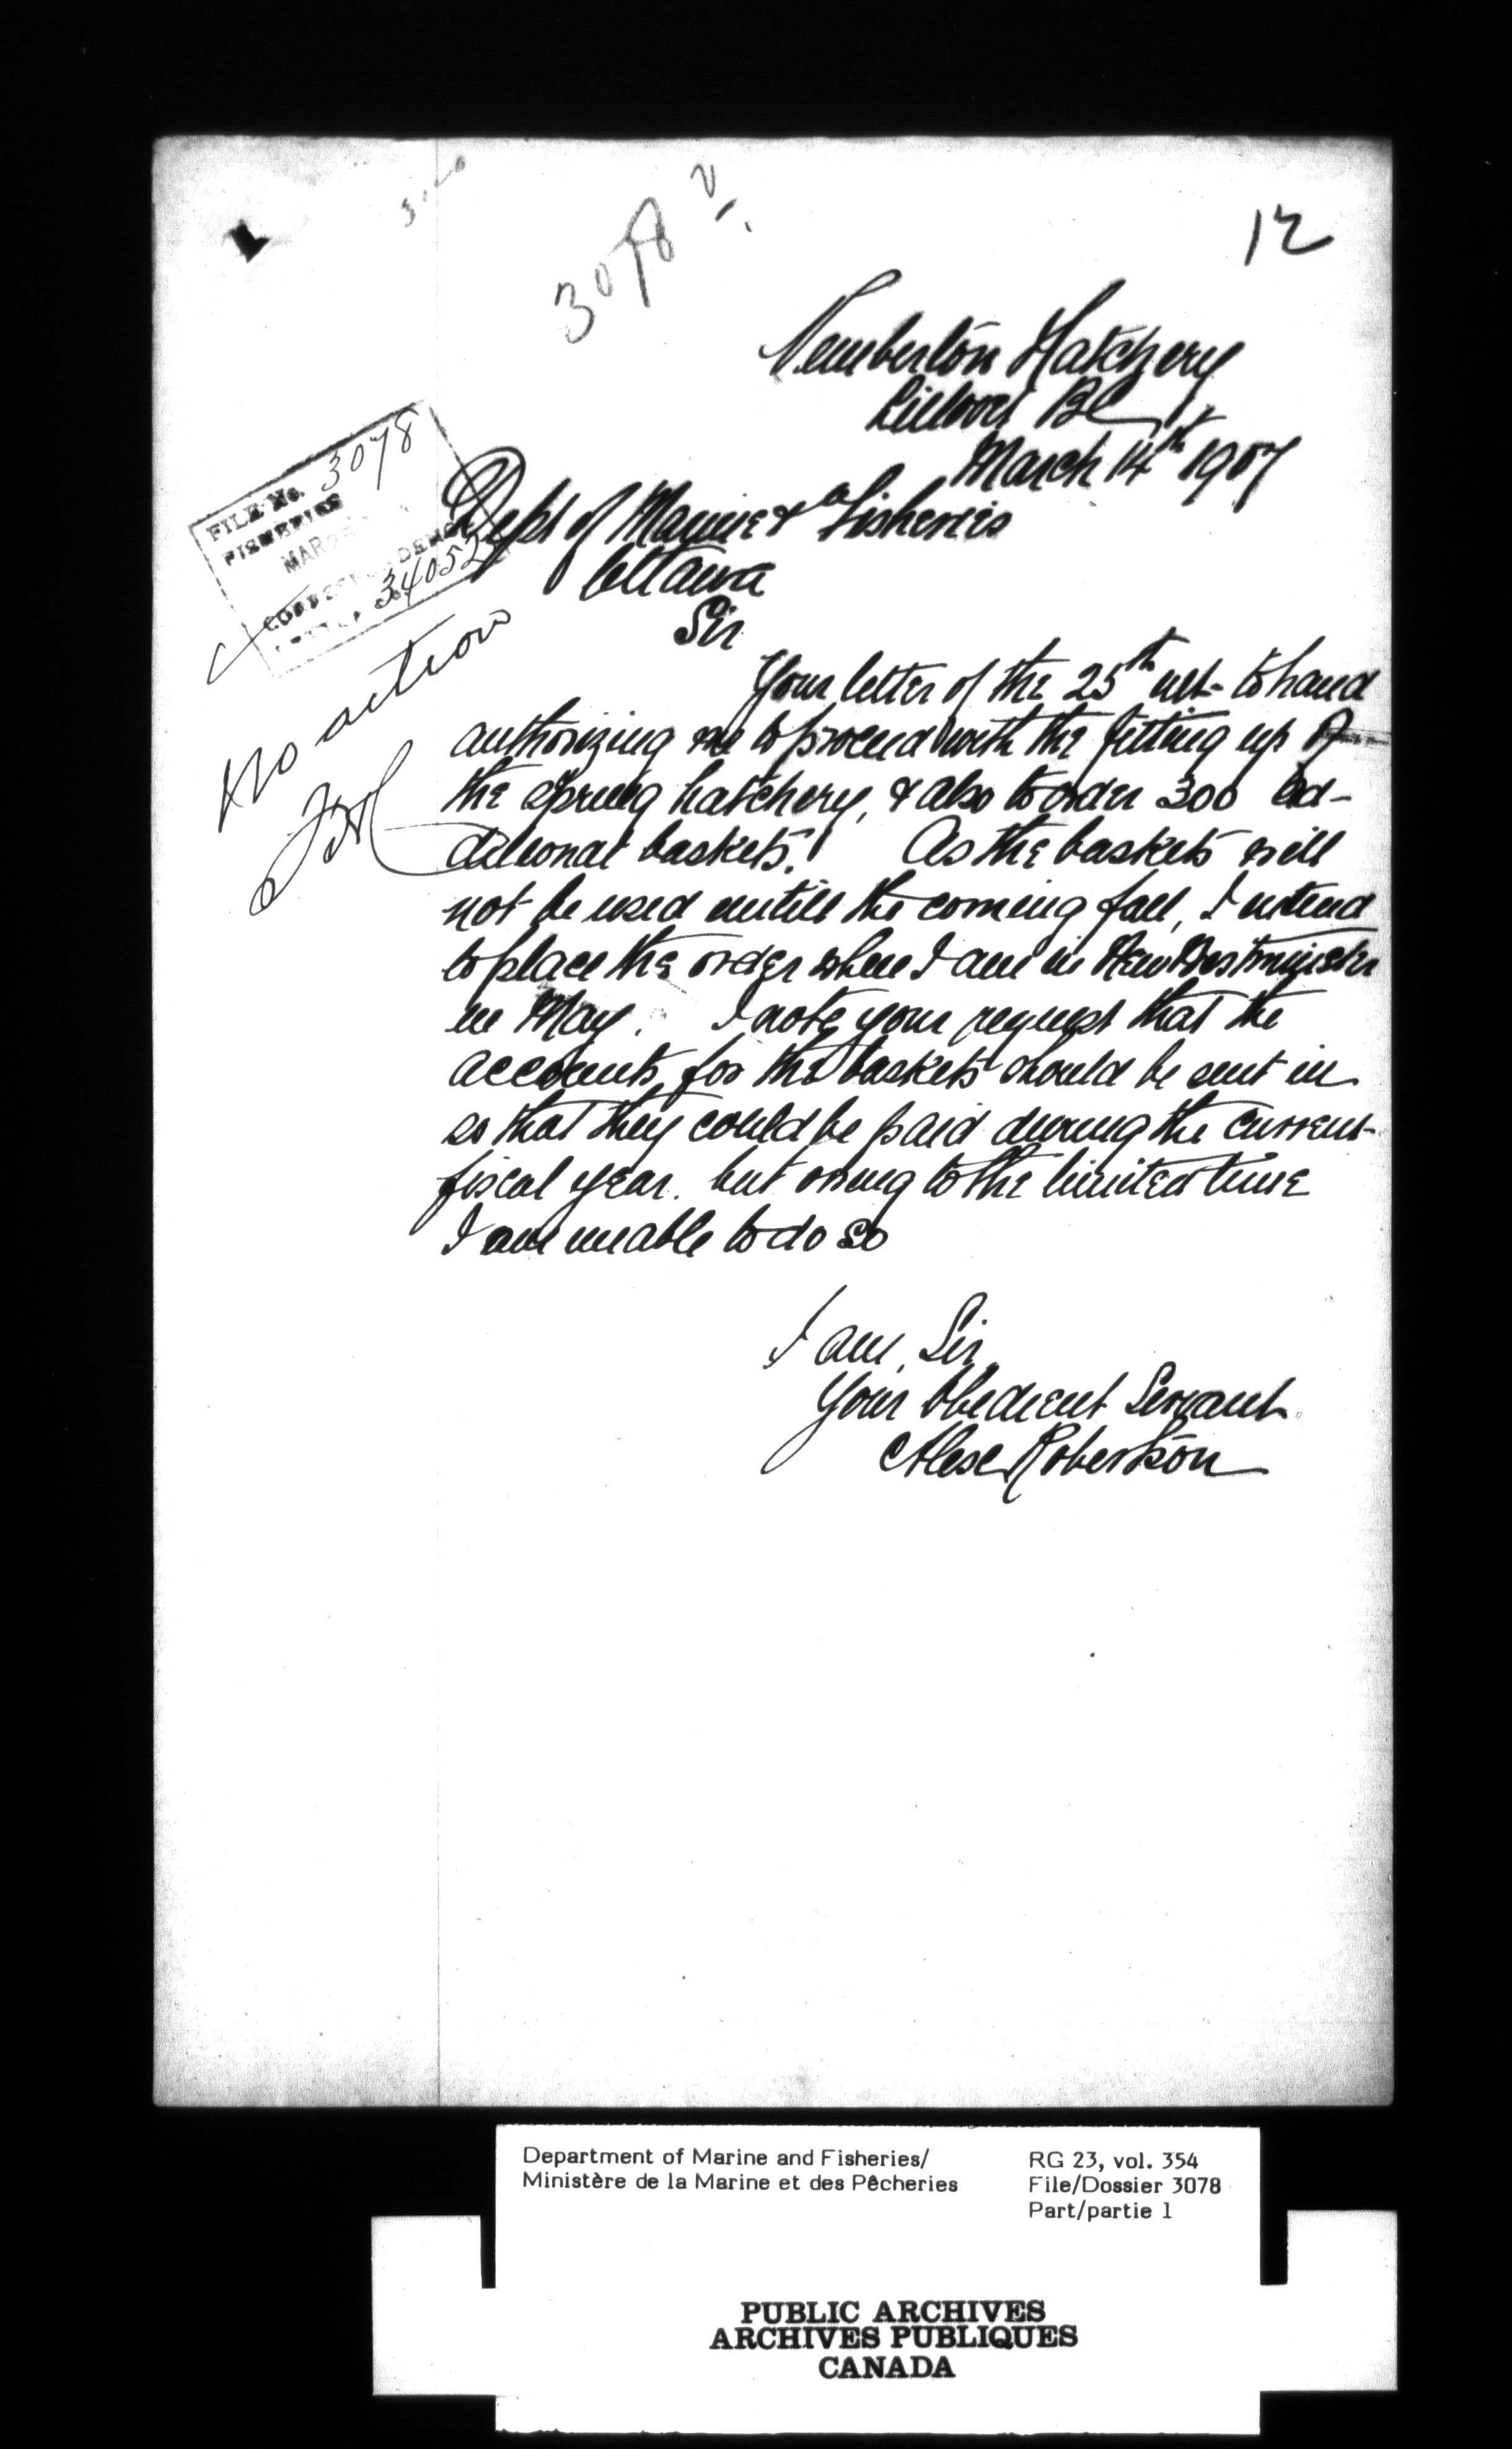 3078
12
Pemberton Hatchery
Lillooet BC
March 14th 1907
FILE No. 3078
FISHERIES
MAR
34052
No action
Dept of Marine & Fisheries
Ottawa
Sir
Your letter of the 25th ult- to hand
authorizing me to proceed with the fitting up of
the spring hatchery, & also to order 300 ad-
ditional baskets. As the baskets will
not be used untill the coming fall, I intend
to place the order when I am in New Westminster
in May. I note your request that the
accounts for the baskets should be sent in
so that they could be paid during the current
fiscal year. but owing to the limited time
I am unable to do so
I am, Sir
Your Obedient Servant
Alex Robertson
Department of Marine and Fisheries/
Ministère de la Marine et des Pêcheries
RG 23, vol. 354
File/Dossier 3078
Part/partie 1
PUBLIC ARCHIVES
ARCHIVES PUBLIQUES
CANADA